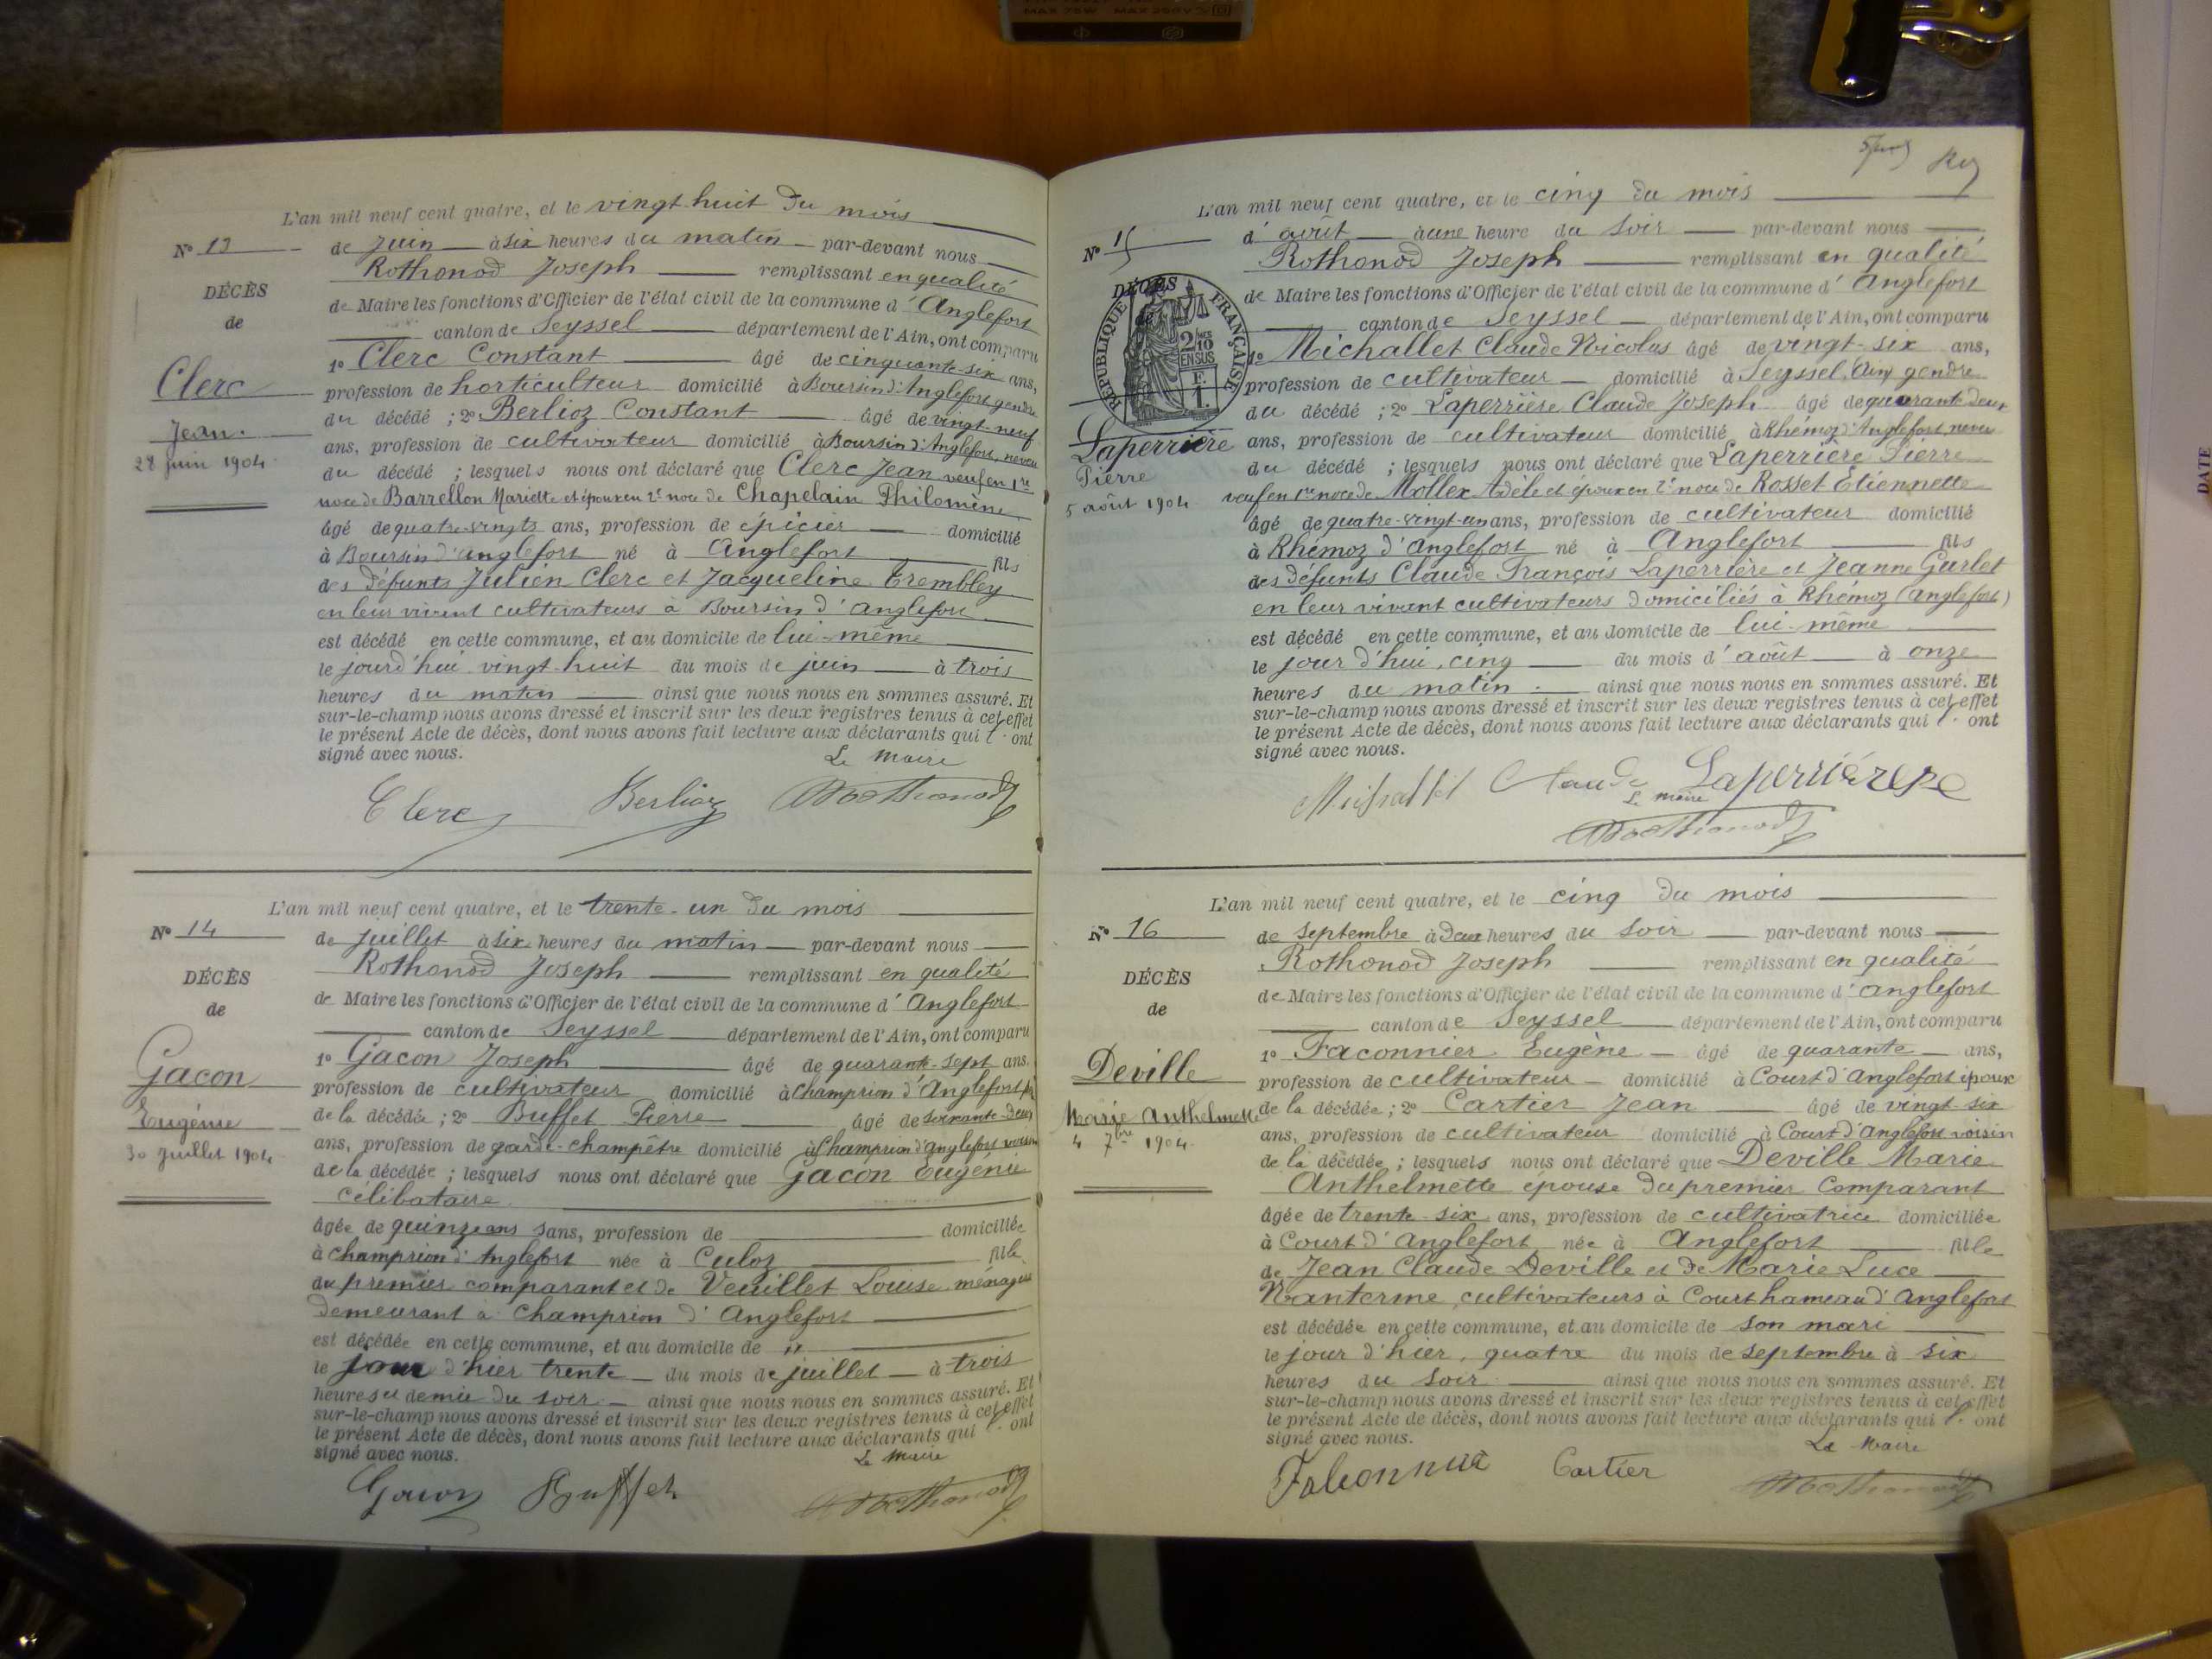 L'an mil neuf cent quatre, et le vingt-huit du mois
N° 13
de Juin à six heures du matin par-devant nous
Rothonod Joseph remplissant en qualité
DÉCÈS
de Maire les fonctions d'Officier de l'état civil de la commune d'Anglefort
de
canton de Seyssel département de l'Ain, ont comparu
1° Clerc Constant âgé de cinquante-six ans,
Clerc
profession de horticulteur domicilié à Boursin d'Anglefort gendre
du décédé ; 2° Berlioz Constant âgé de vingt-neuf
Jean
ans, profession de cultivateur domicilié à Boursin d'Anglefort, neveu
28 juin 1904
du décédé ; lesquels nous ont déclaré que Clerc Jean veuf en 1re
noce de Barrellon Mariette et époux en 2e noce de Chapelain Philomène
âgé de quatre-vingts ans, profession de épicier domicilié
à Boursin d'Anglefort né à Anglefort fils
des défunts Julien Clerc et Jacqueline Trembley
en leur vivant cultivateurs à Boursin d'Anglefort
est décédé en cette commune, et au domicile de lui-même
le jourd'hui vingt-huit du mois de juin à trois
heures du matin ainsi que nous nous en sommes assuré. Et
sur-le-champ nous avons dressé et inscrit sur les deux registres tenus à cet effet
le présent Acte de décès, dont nous avons fait lecture aux déclarants qui l'ont
signé avec nous.
Le Maire
Clerc Berlioz Rothonod
L'an mil neuf cent quatre, et le trente-un du mois
N° 14
de Juillet à six heures du matin par-devant nous
Rothonod Joseph remplissant en qualité
DÉCÈS
de Maire les fonctions d'Officier de l'état civil de la commune d'Anglefort
de
canton de Seyssel département de l'Ain, ont comparu
1° Gacon Joseph âgé de quarante-sept ans,
Gacon
profession de cultivateur domicilié à Champrion d'Anglefort
de la décédée ; 2° Buffet Pierre âgé de soixante-deux
Eugénie
ans, profession de garde-champêtre domicilié à Champrion d'Anglefort voisin
30 Juillet 1904
de la décédée ; lesquels nous ont déclaré que Gacon Eugénie
célibataire
âgée de quinze ans sans, profession de domiciliée
à Champrion d'Anglefort née à Culoz fille
du premier comparant et de Veuillet Louise ménagère
demeurant à Champrion d'Anglefort
est décédée en cette commune, et au domicile de "
le jour d'hier trente du mois de juillet à trois
heures et demie du soir ainsi que nous nous en sommes assuré. Et
sur-le-champ nous avons dressé et inscrit sur les deux registres tenus à cet effet
le présent Acte de décès, dont nous avons fait lecture aux déclarants qui l'ont
signé avec nous.
Le Maire
Gacon Buffet Rothonod
L'an mil neuf cent quatre, et le cinq du mois
N° 15
d'août à une heure du soir par-devant nous
Rothonod Joseph remplissant en qualité
DÉCÈS
de Maire les fonctions d'Officier de l'état civil de la commune d'Anglefort
RÉPUBLIQUE FRANÇAISE
2/10 EN SUS
F. 1.
canton de Seyssel département de l'Ain, ont comparu
1° Michallet Claude Nicolas âgé de vingt-six ans,
profession de cultivateur domicilié à Seyssel, (Ain) gendre
du décédé ; 2° Laperrière Claude Joseph âgé de quarante deux
Laperrière
ans, profession de cultivateur domicilié à Rhémoz d'Anglefort, neveu
Pierre
du décédé ; lesquels nous ont déclaré que Laperrière Pierre
5 août 1904
veuf en 1re noce de Mollex Adèle et époux en 2e noce de Rosset Etiennette
âgé de quatre-vingt-un ans, profession de cultivateur domicilié
à Rhémoz d'Anglefort né à Anglefort fils
des défunts Claude François Laperrière et Jeanne Gurlet
en leur vivant cultivateurs domiciliés à Rhémoz (Anglefort)
est décédé en cette commune, et au domicile de lui-même
le jour d'hui, cinq du mois d'août à onze
heures du matin ainsi que nous nous en sommes assuré. Et
sur-le-champ nous avons dressé et inscrit sur les deux registres tenus à cet effet
le présent Acte de décès, dont nous avons fait lecture aux déclarants qui l'ont
signé avec nous.
Michallet Claude Laperrière
Le Maire
Rothonod
L'an mil neuf cent quatre, et le cinq du mois
N° 16
de Septembre à deux heures du soir par-devant nous
Rothonod Joseph remplissant en qualité
DÉCÈS
de Maire les fonctions d'Officier de l'état civil de la commune d'Anglefort
de
canton de Seyssel département de l'Ain, ont comparu
1° Faconnier Eugène âgé de quarante ans,
Deville
profession de cultivateur domicilié à Court d'Anglefort époux
Marie Anthelmette
de la décédée ; 2° Cartier Jean âgé de vingt-six
4 7bre 1904
ans, profession de cultivateur domicilié à Court d'Anglefort voisin
de la décédée ; lesquels nous ont déclaré que Deville Marie
Anthelmette épouse du premier comparant
âgée de trente-six ans, profession de cultivatrice domiciliée
à Court d'Anglefort née à Anglefort fille
de Jean Claude Deville et de Marie Luce
Nanterme, cultivateurs à Court hameau d'Anglefort
est décédée en cette commune, et au domicile de son mari
le jour d'hier, quatre du mois de septembre à six
heures du soir ainsi que nous nous en sommes assuré. Et
sur-le-champ nous avons dressé et inscrit sur les deux registres tenus à cet effet
le présent Acte de décès, dont nous avons fait lecture aux déclarants qui l'ont
signé avec nous.
Le Maire
Cartier Rothonod
DATE